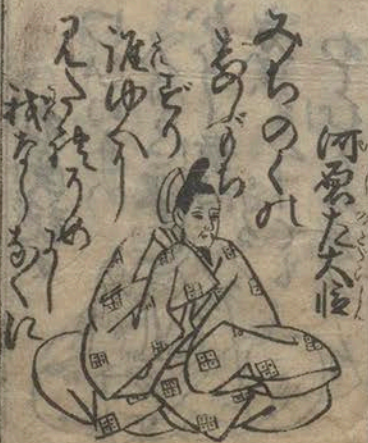 河原左大臣
みちのくの
志のぶもぢ
ずり
誰ゆへに
見だれそめにし
我ならなくに